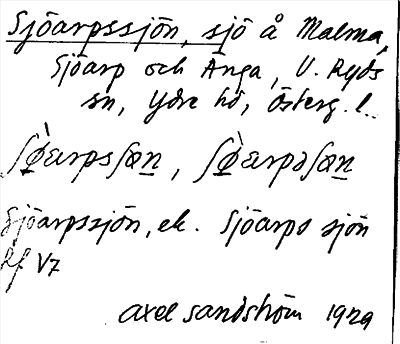 Sjöarpssjön, sjö å Malma,
Sjöarp och Änga, V. Ryds
sn, Ydre hd, Österg. l.
ʃø̀arpsʃøn, ʃø̀arpsʃøn
Sjöarpssjön, ek. Sjöarps sjön
V7
Axel Sandström 1929